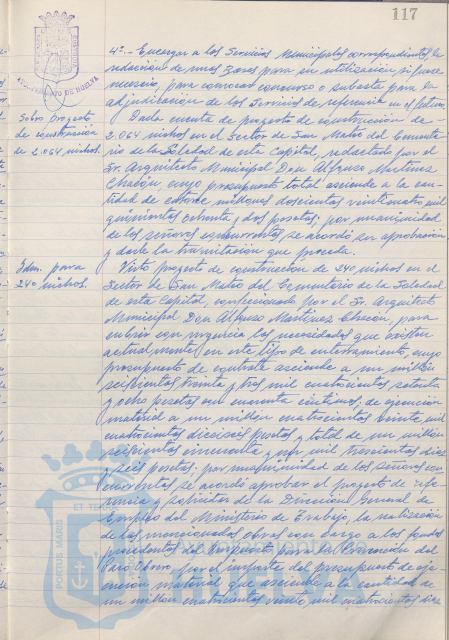 117
AYUNTAMIENTO DE HUELVA
4º.- Encargar a los Servicios Municipales correspondientes, la
redacción de unas Bases para su utilización si fuere
necesario, para convocar concurso o subasta para la
adjudicación de los Servicios de referencia en el futuro.
Sobre proyecto
de construcción
de 2.064 nichos.
Dada cuenta de proyecto de construcción de
2.064 nichos en el Sector de San Mateo del Cemente
rio de la Soledad de esta Capital, redactado por el
Sr. Arquitecto Municipal Don Alfonso Martínez
Chacón, cuyo presupuesto total asciende a la can
tidad de catorce millones doscientas veinticuatro mil
quinientas ochenta y dos pesetas; por unanimidad
de los señores concurrentes, se acordó su aprobación
y darle la tramitación que proceda.
Idm. para
240 nichos.
Visto proyecto de construcción de 240 nichos en el
Sector de San Mateo del Cementerio de la Soledad
de esta Capital, confeccionado por el Sr. Arquitecto
Municipal Don Alfonso Martínez Chacón, para
cubrir con urgencia las necesidades que existen
actualmente en este tipo de enterramiento, cuyo
presupuesto de contrata asciende a un millón
seiscientas treinta y tres mil cuatrocientas setenta
y ocho pesetas con cuarenta céntimos; de ejecución
material a un millón cuatrocientas veinte mil
cuatrocientas dieciséis pesetas y total de un millón
seiscientas cincuenta y un mil trescientas diez
y seis pesetas; por unanimidad de los señores con
currentes se acordó aprobar el proyecto de refe
rencia y solicitar de la Dirección General de
Empleo del Ministerio de Trabajo, la realización
de las mencionadas obras con cargo a los fondos
procedentes del Impuesto para la Prevención del
Paro Obrero, por el importe del presupuesto de eje
cución material que asciende a la cantidad de
un millón cuatrocientas veinte mil cuatrocientas diez
PORTUS MARIS
ET TE
HUELVA